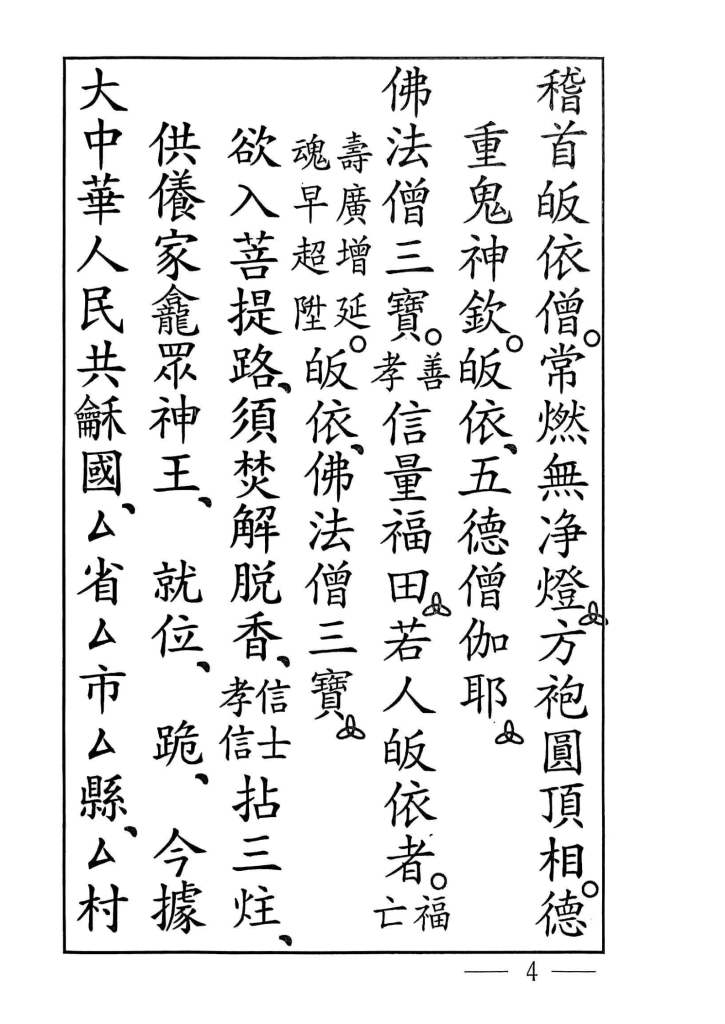 稽首皈依僧。常燃無净燈方袍圓頂相。德
重鬼神欽。皈依、五德僧伽耶
佛法僧三寶。善孝信量福田若人皈依者。福亡
壽廣增延魂早超陞。皈依、佛法僧三寶
欲入菩提路、須焚解脱香、信士孝信拈三炷、
供養家龕眾神王、就位、跪、今據
大中華人民共龢國、厶省厶市厶縣、厶村
4